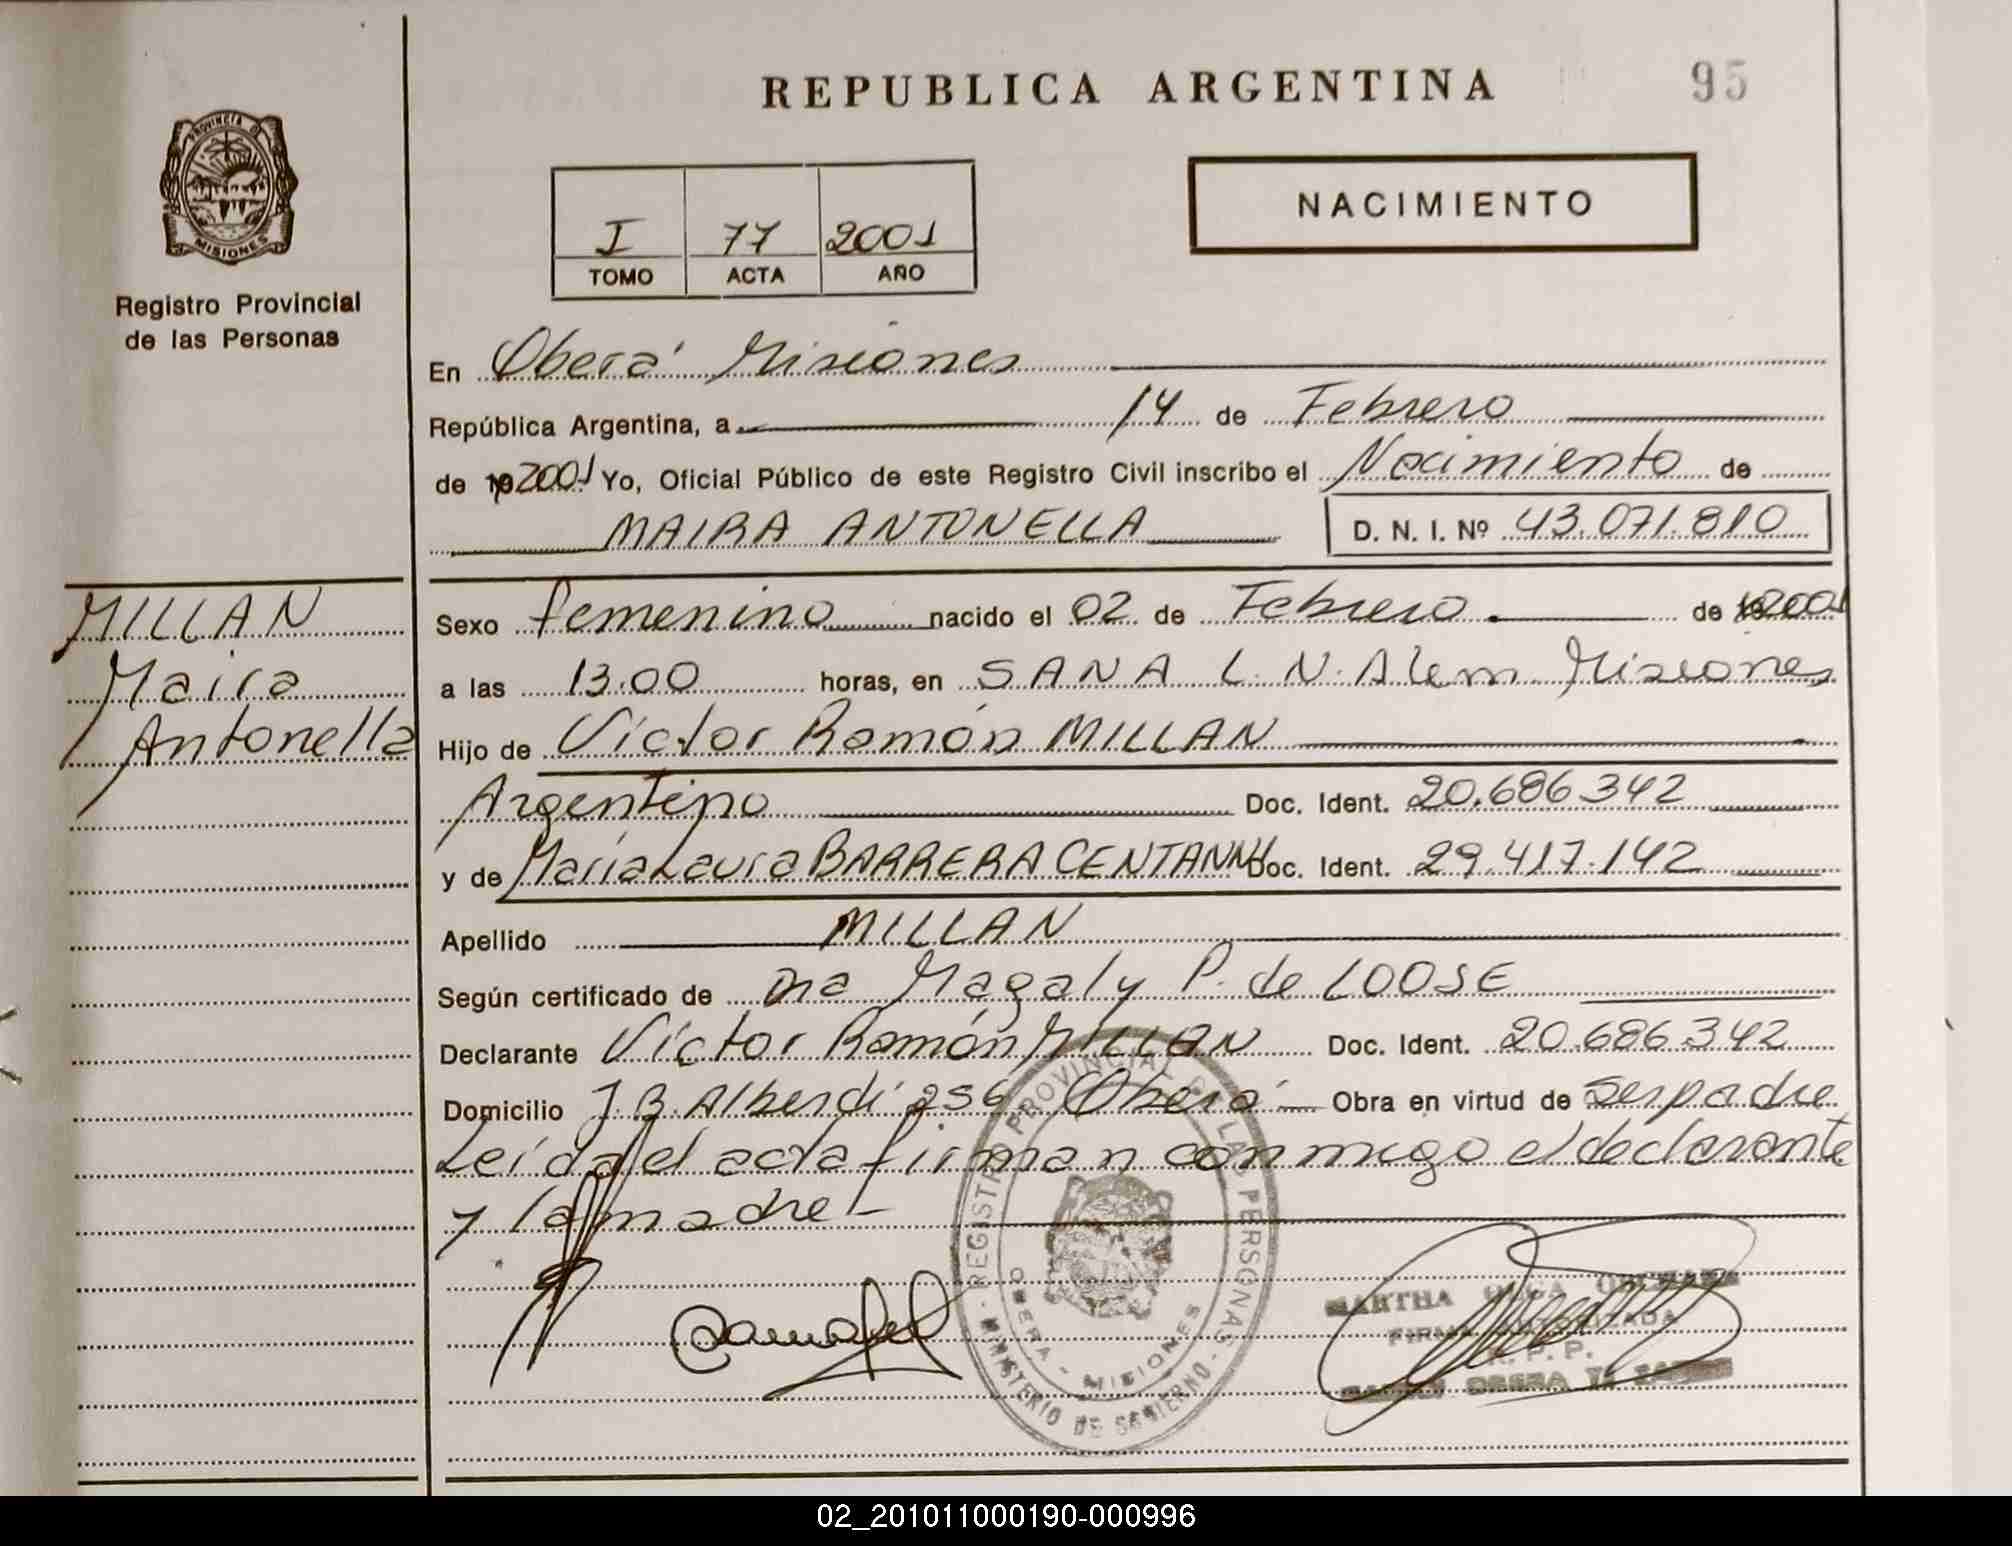 REPUBLICA ARGENTINA
95
PROVINCIA DE
MISIONES
Registro Provincial
de las Personas
I 77 2001
TOMO ACTA AÑO
NACIMIENTO
En Oberá Misiones
República Argentina, a 14 de Febrero
de 2001 Yo, Oficial Público de este Registro Civil inscribo el Nacimiento de
MAIRA ANTONELLA D. N. I. Nº 43.071.810
MILLAN
Maira
Antonella
Sexo femenino nacido el 02 de Febrero de 2001
a las 13.00 horas, en SANA L. N. Alem Misiones
Hijo de Víctor Ramón MILLAN
Argentino Doc. Ident. 20.686.342
y de María Laura BARRERA CENTANNI Doc. Ident. 29.417.142
Apellido MILLAN
Según certificado de Dra Magaly P. de LOOSE
Declarante Víctor Ramón MILLAN Doc. Ident. 20.686.342
Domicilio J.B. Alberdi 256 Oberá Obra en virtud de ser padre
Leída el acta firman conmigo el declarante
y la madre
REGISTRO PROVINCIAL DE LAS PERSONAS
MINISTERIO DE GOBIERNO
OBERA - MISIONES
MARTHA OLGA
FIRMA AUTORIZADA
R. P. P.
OBERA
02_201011000190-000996